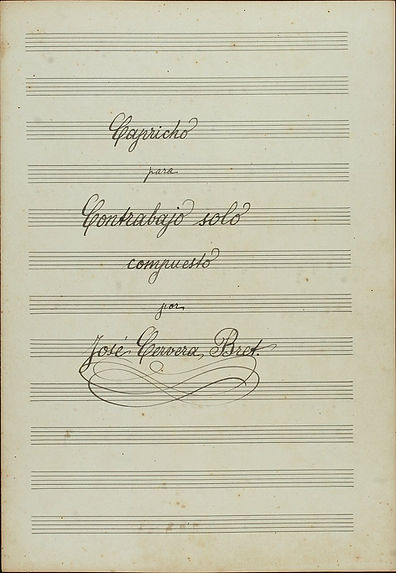 Capricho
para
Contrabajo solo
compuesto
por
José Cervera Bret.